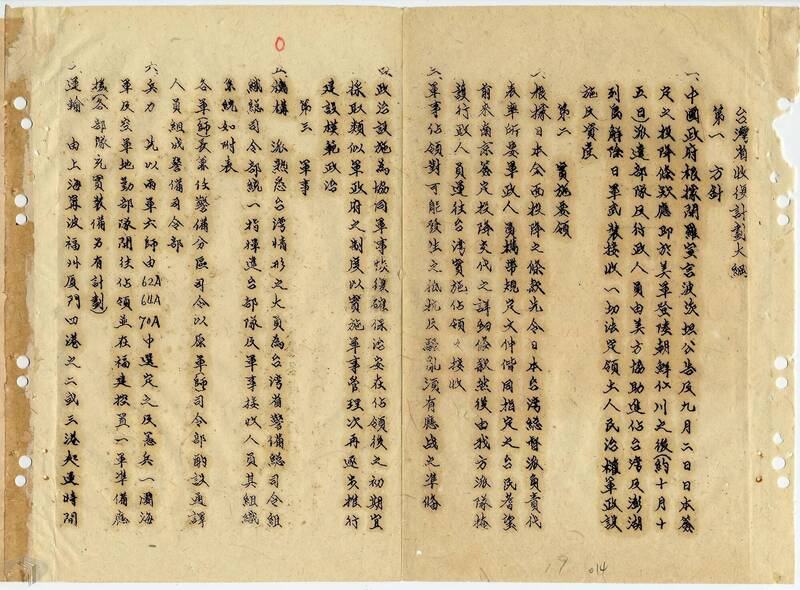 台灣省收復計劃大綱
第一　方針
一、中國政府根據開羅宣言波茨坦公告及九月二日日本簽
定之投降條款應即於美軍登陸朝鮮仁川之後(約十月十
五日)派遣部隊及行政人員由美方協助進佔台灣及澎湖
列島解除日軍武裝接收一切法定領土人民治權軍政設
施及資產
第二　實施要領
二、根據日本全面投降之條款先令日本台灣總督派負責代
表率所要軍政人員攜帶規定文件偕同指定之台民著望
前來南京簽定投降交代之詳細條款然後由我方派隊掩
護行政人員運往台灣實施佔領之接收
三、軍事佔領對可能發生之抵抗及騷亂須有應戰之準備
四、政治設施為協同軍事恢復確保治安在佔領後之初期宜
採取類似軍政府之制度以實施軍事管理次再逐步推行
建設模範政治
第三　軍事
五、機構　派熟悉台灣情形之大員為台灣省警備總司令組
織總司令部統一指揮進台部隊及軍事接收人員其組織
系統如附表
各軍(師)長兼任警備分區司令以原軍(師)司令部酌設通譯
人員組成警備司令部
六、兵力　先以兩軍六師由62A
64A
70A中選定之及憲兵一團海
軍及空軍地勤部隊開往佔領並在福建控置一軍準備應
援(各部隊充實裝備另有計劃)
、運輸　由上海寧波福州廈門四港之二或三港起運時間
19
014